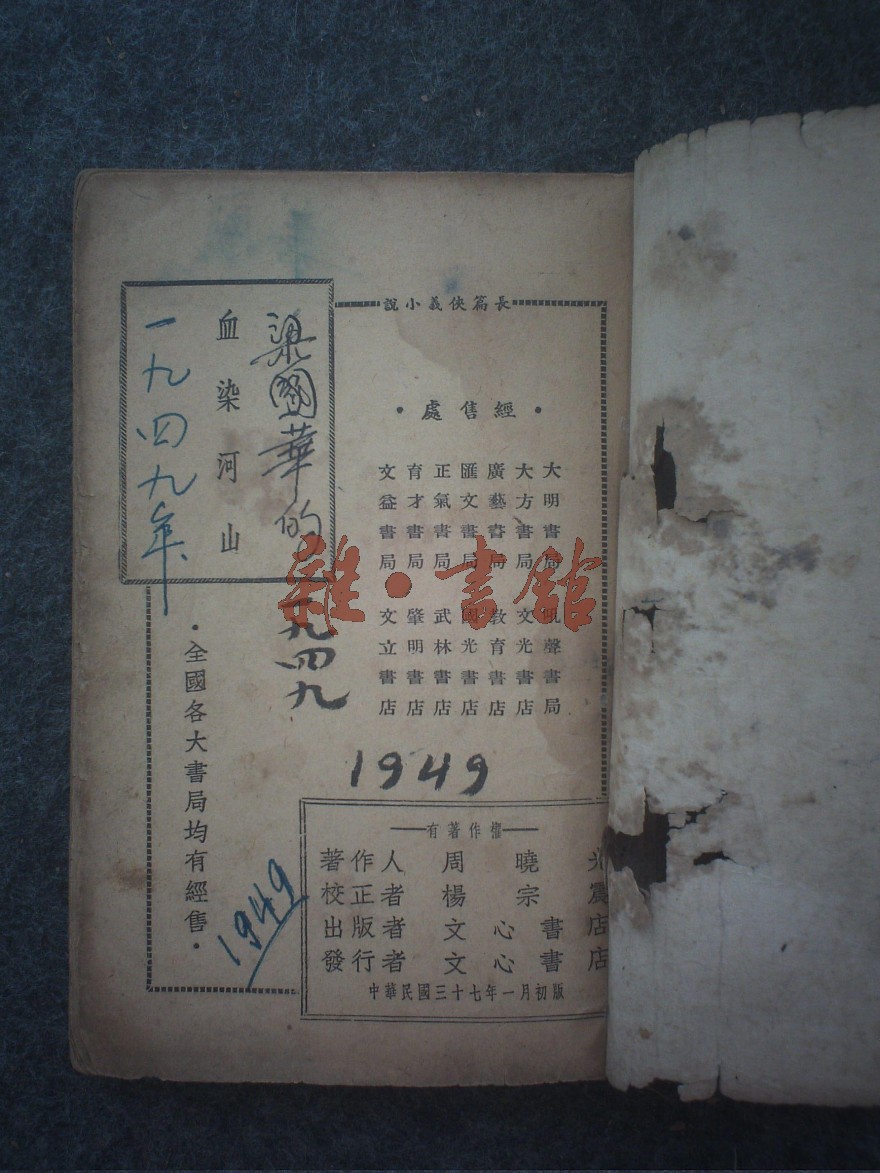 長篇俠義小說
•經售處•
大明書局 吼聲書局
大方書局 文光書店
廣藝書局 教育書店
匯文書局 國光書店
正氣書局 武林書店
育才書局 肇明書店
文益書局 文立書店
梁國華的
一九四九
血染河山
一九四九年
•全國各大書局均有經售•
1949
1949
有著作權
著作人 周曉光
校正者 楊宗震
出版者 文心書店
發行者 文心書店
中華民國三十七年一月初版
雜•書館